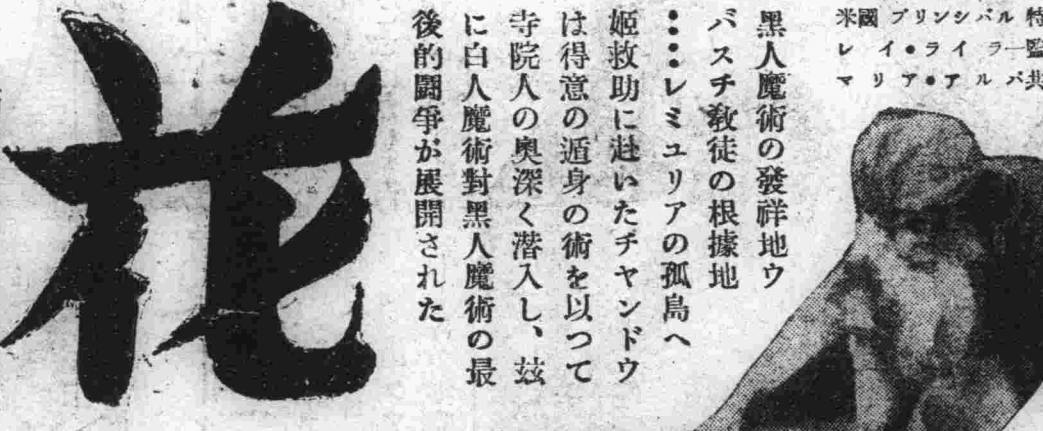 米國プリンシパル特
レイ・ライラー監
マリア・アルバ共
黑人魔術の發祥地ウ
バスチ敎徒の根據地
・・・レミュリアの孤島へ
姬救助に赴いたチヤンドウ
は得意の遁身の術を以つて
寺院人の奥深く潛入し、玆
に白人魔術對黑人魔術の最
後的鬪爭が展開された
花